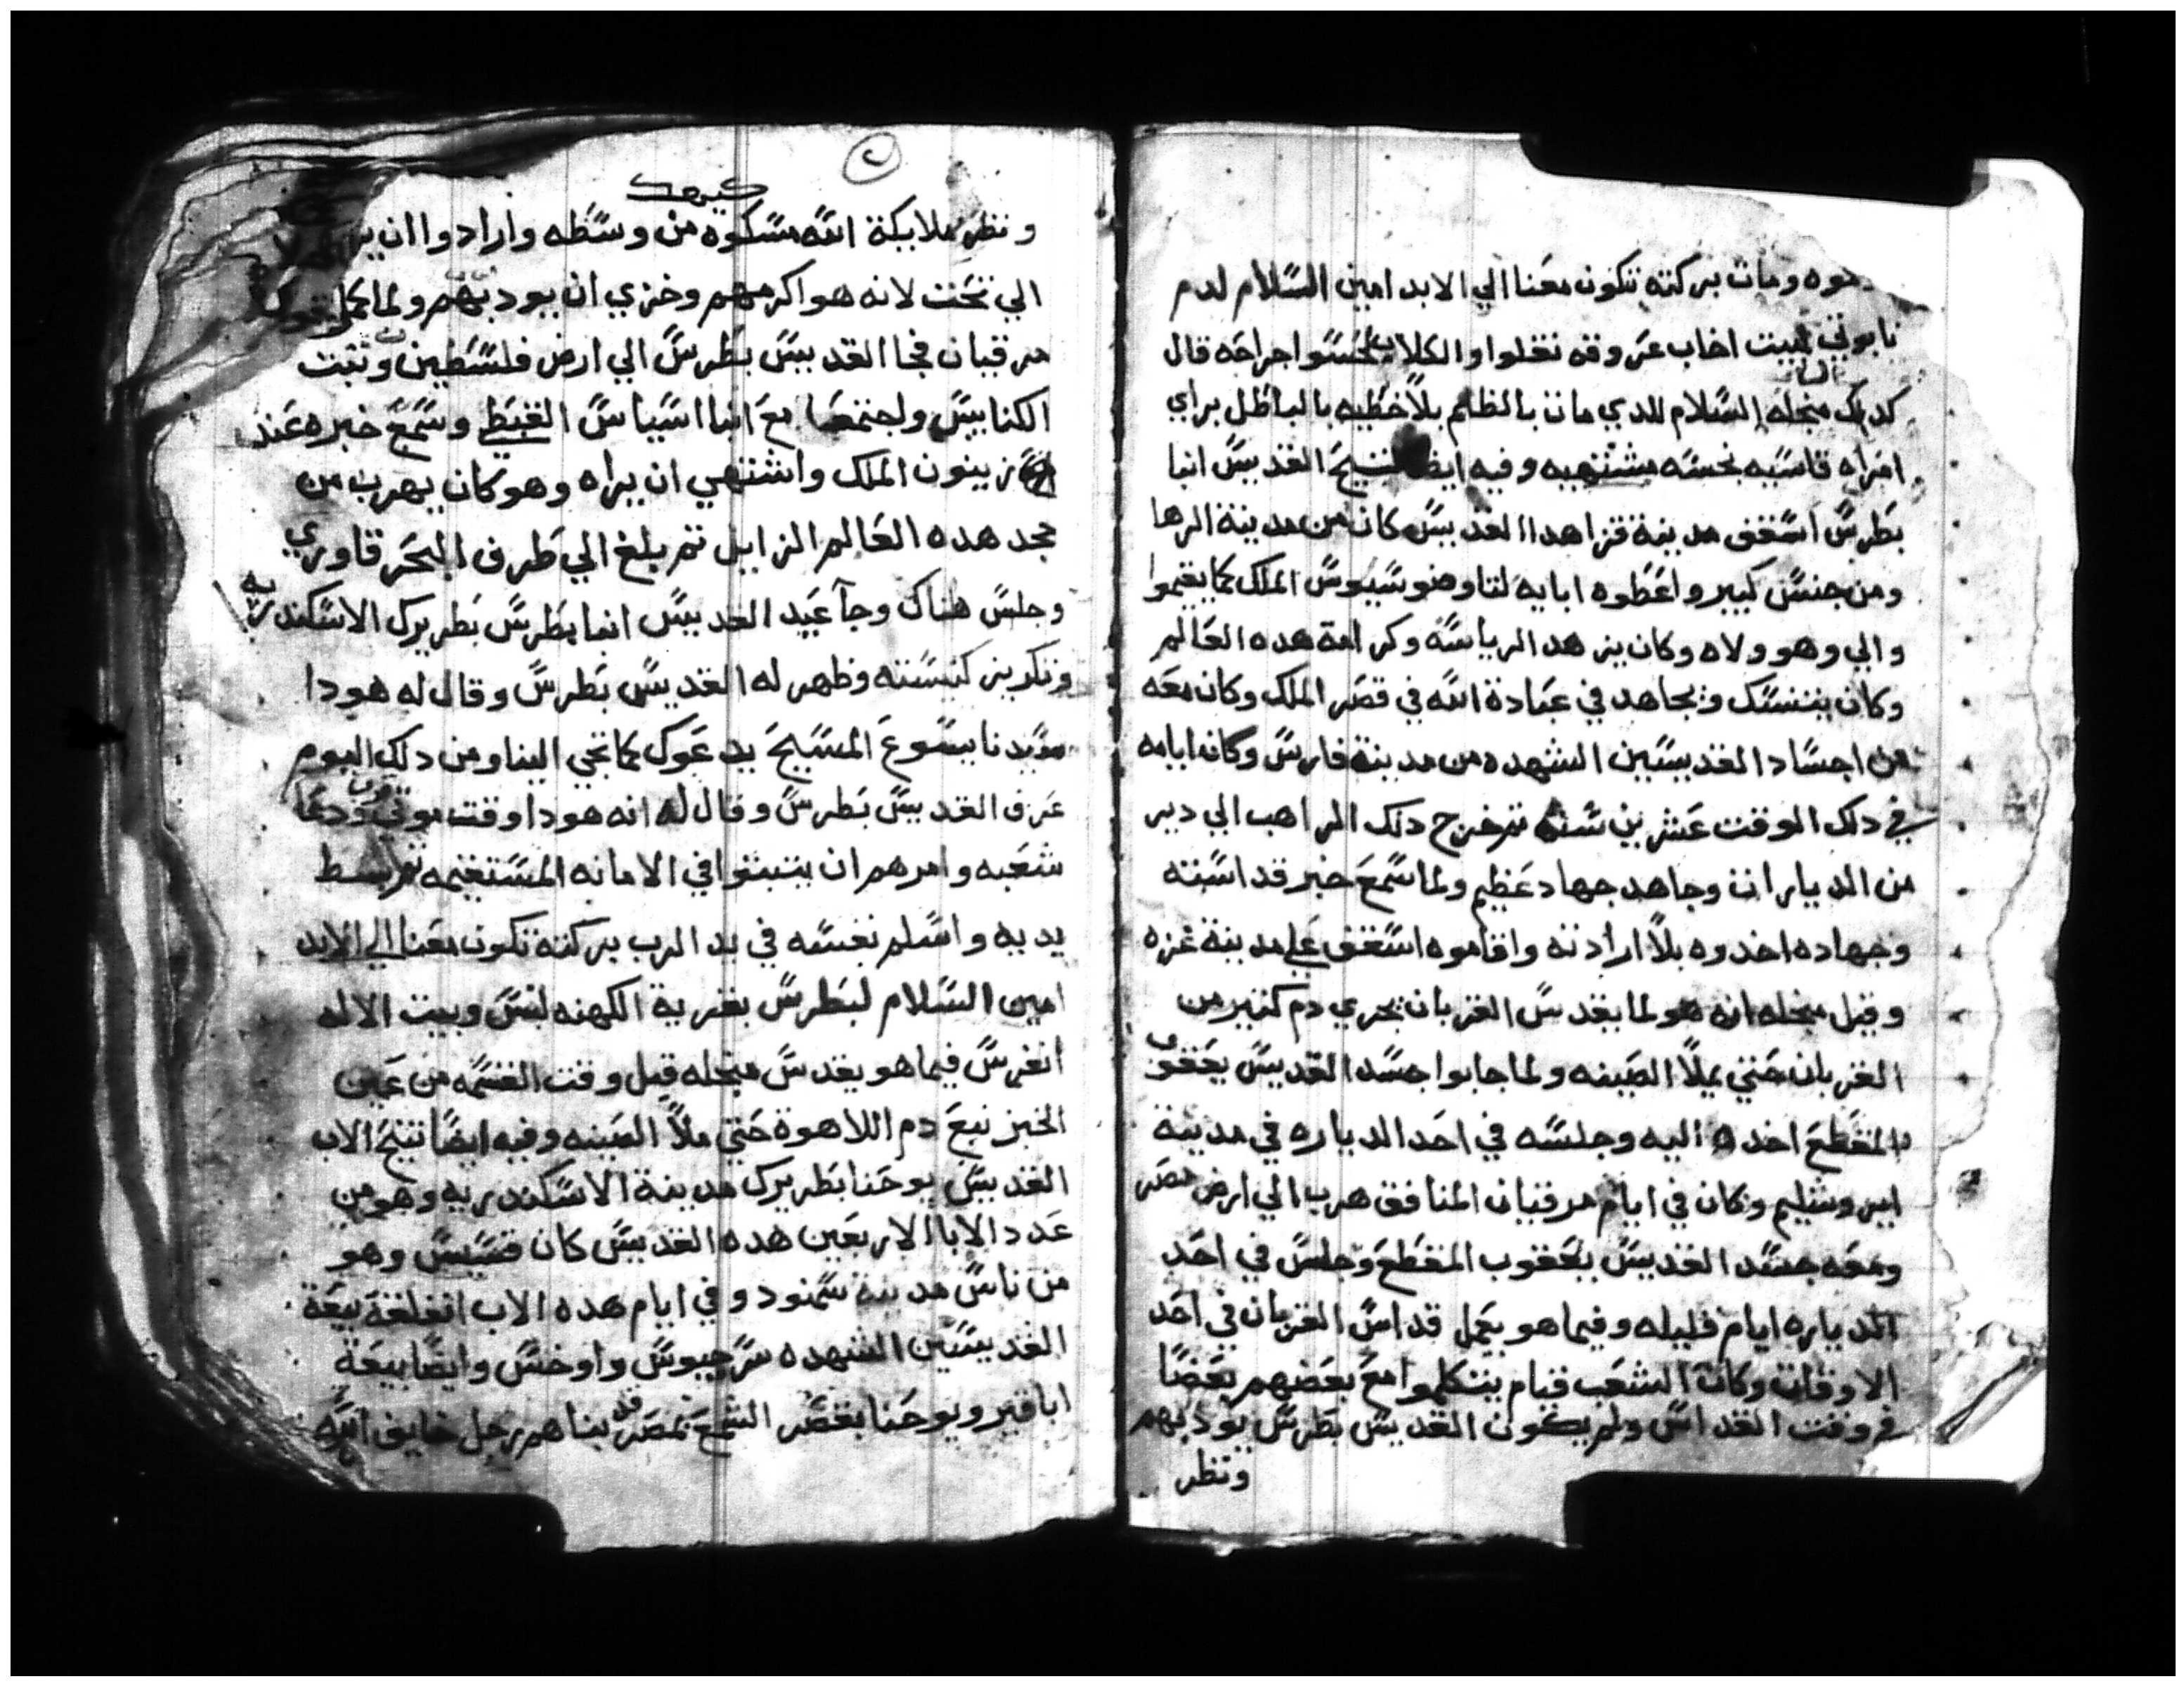 ومات بركته تكون معنا الي الابد امين السلام لدم
نابوتي لبيت اخاب عروقه نقلوا والكلاب لحسوا جراحه قال
كدلك منجله السلام للدي مات بالظلم بلا خطيه بالباطل براي
امراه قاسيه نجسه مشتهيه وفيه ايضا تنيح القديس انبا
بطرس اسقف مدينة قزا هدا القديس كان من مدينة الرها
ومن جنس كبير واعطوه ابايه لتاوضوسيوس الملك كما يقيموا
والي وهو ولاه وكان يزهد الرياسه وكرامة هده العالم
وكان يتنسك ويجاهد في عبادة الله في قصر الملك وكان معه
من اجساد القديسين الشهده من مدينة فارس وكانه ايامه
في دلك الوقت عشرين سنه تم خرج دلك الراهب الي دير
من الديارات وجاهد جهاد عظيم ولما سمع خبر قداسته
وجهاده اخدوه بلا ارادته واقاموه اسقف علي مدينة غزه
وقيل منجله انه هو لما يقدس القربان يجري دم كتير من
القربان حتي يملا الصينه ولما جابوا جسد القديس يعقوب
المقطع اخده اليه وجلسه في احد الدياره في مدينة
ايروشليم وكان في ايام مرقيان المنافق هرب الي ارض مصر
ومعه جسد القديس يعقوب المقطع وجلس في احد
الدياره ايام قليله وفيما هو يعمل قداس القربان في احد
الاوقات وكانت الشعب قيام يتكلموا مع بعضهم بعضا
في وقت القداس ولم يكون القديس بطرس يودبهم
وتظر
كيهك
وتظر ملايكة الله مسكوه من وسطه وارادوا ان
الي تحت لانه هو اكرمهم وخزي ان يودبهم ولما كمل
مرقيان فجا القديس بطرس الي ارض فلسطين وثبت
الكنايس واجتمعا مع انبا اسياس القبطي وسمع خبره عند
زينون الملك واشتهي ان يراه وهو كان يهرب من
مجد هده العالم الزايل تم بلغ الي طرف البحر قاوري
وجلس هناك وجآ عيد القديس انبا بطرس بطريرك الاسكندريه
وتكريز كنيسته وظهر له القديس بطرس وقال له هودا
سيدنا يسوع المسيح يدعوك كما تجي الينا ومن دلك اليوم
عرف القديس بطرس وقال له انه هودا وقت موتي ودعا
شعبه وامرهم ان يتبتوا في الامانه المستقيمه تم بسط
يديه واسلم نفسه في يد الرب بركته تكون معنا الي الابد
امين السلام لبطرس بقرية الكهنه لبس وبيت الاله
انغرس فيما هو يقدس منجله قبل وقت القسمه من عمين
الخبز نبع دم اللاهوة حتي ملا الصينه وفيه ايضا تنيح الاب
القديس يوحنا بطريرك مدينة الاسكندريه وهو من
عدد الابا الاربعين هده القديس كان قسيس وهو
من ناس مدينة سمنود وفي ايام هده الاب انغلقة بيعة
القديسين الشهده سرجيوس واوخس وايضا بيعة
اباقير ويوحنا بقصر الشمع بمصر قد بناهم رجل خايف الله